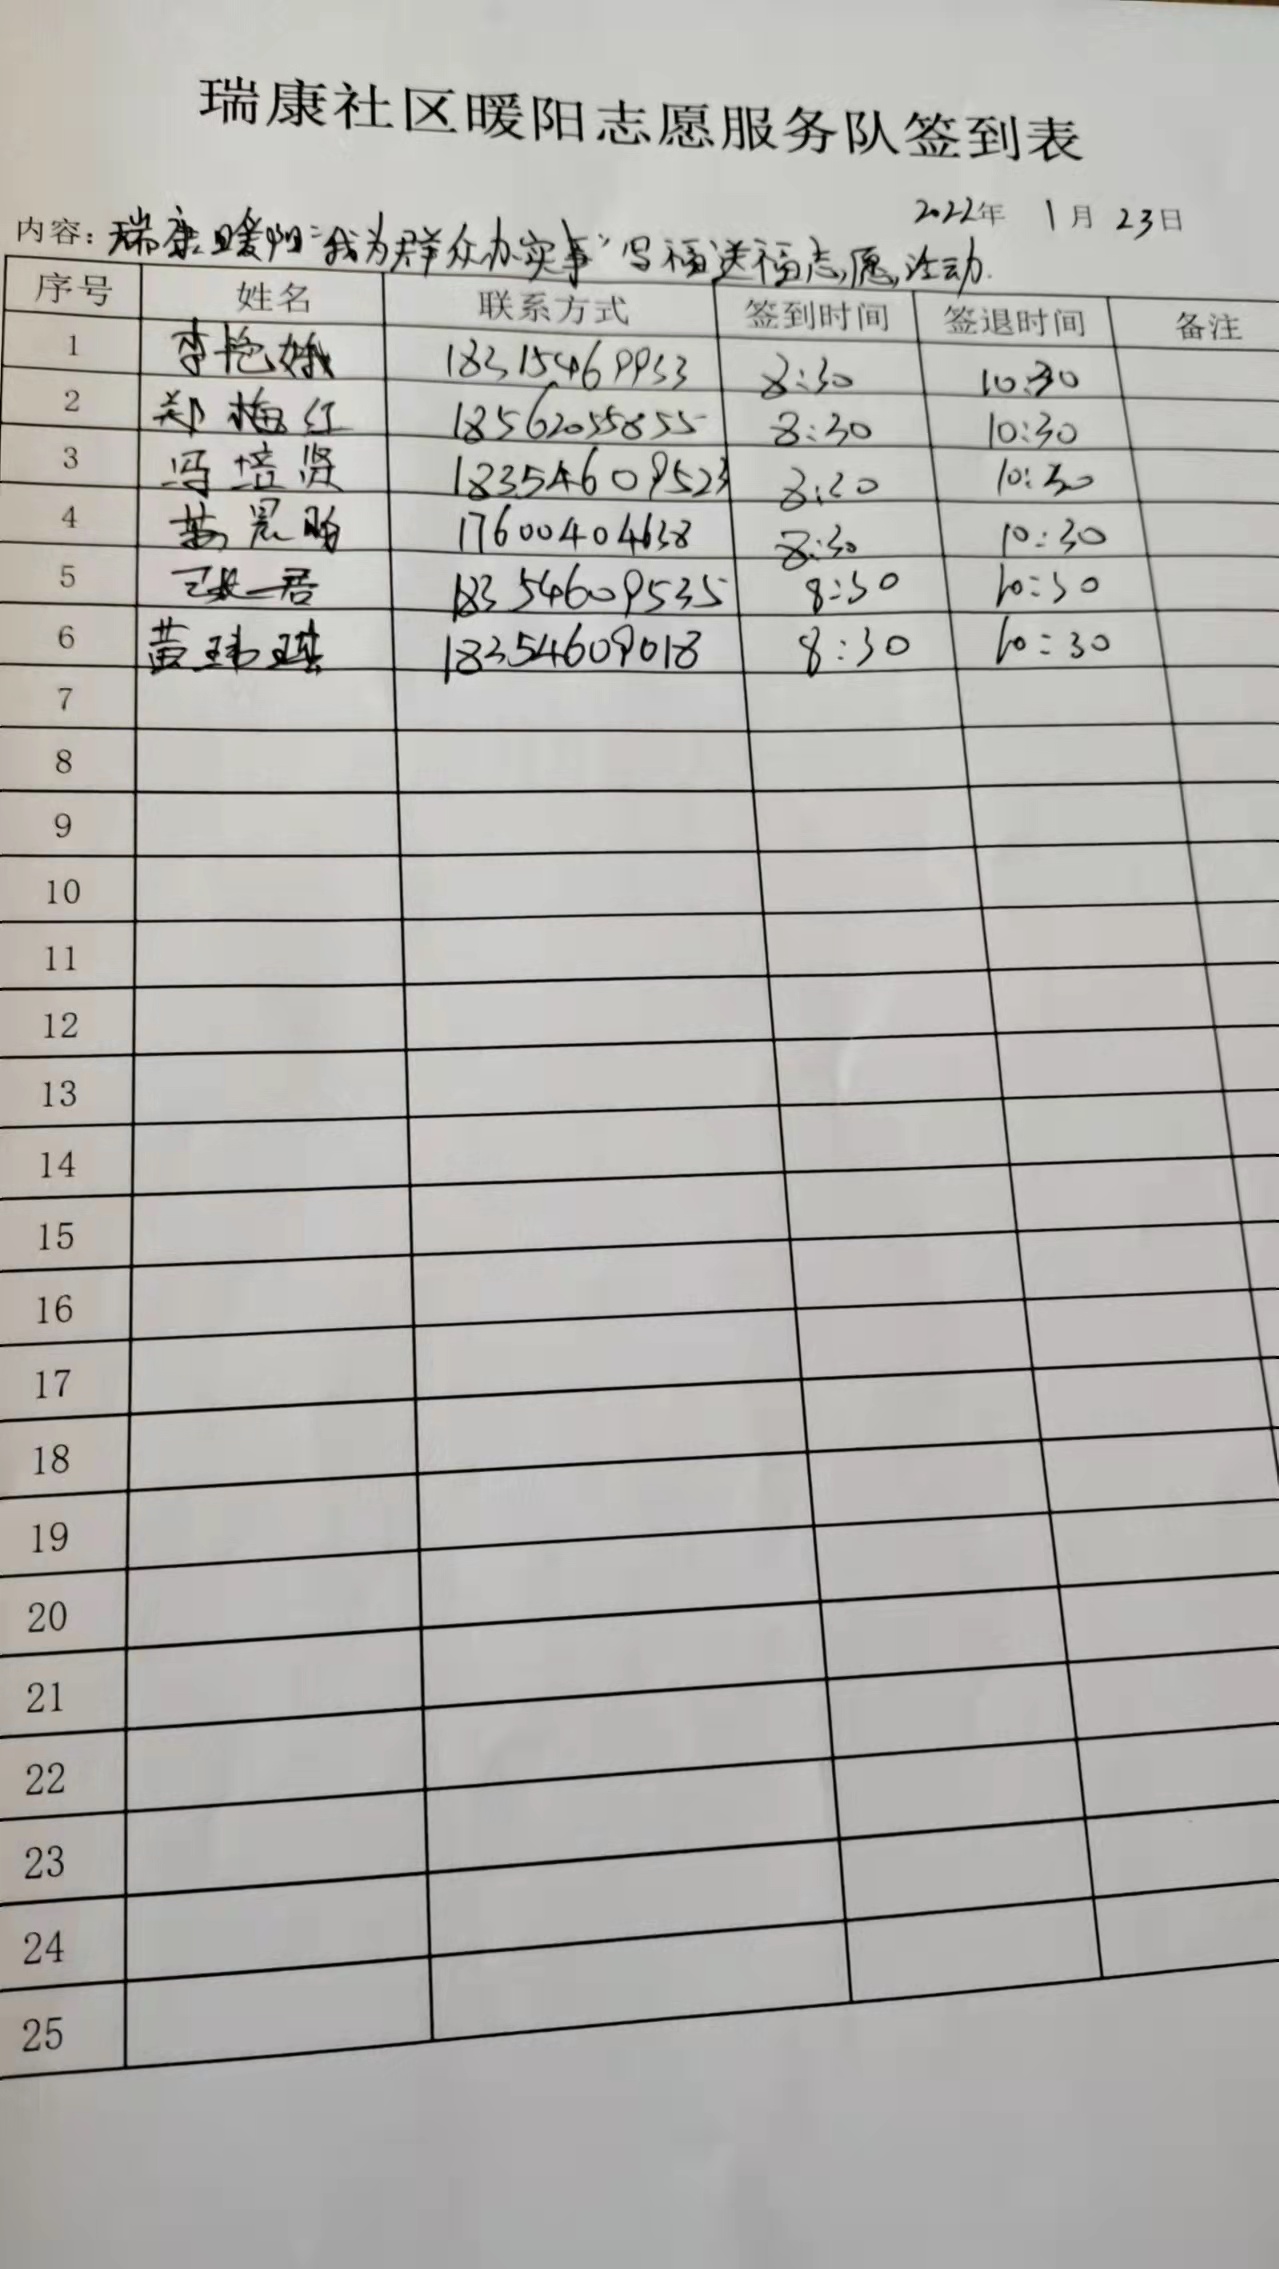 瑞康社区暖阳志愿服务队签到表
2022年 1月 23日
内容：瑞康暖阳“我为群众办实事”写福送福志愿活动.
序号 姓名 联系方式 签到时间 签退时间 备注
1 李艳娥 18315469953 8:30 10:30
2 郑梅红 18562055855 8:30 10:30
3 冯培贤 18354609523 8:30 10:30
4 17600404638 8:30 10:30
5 18354609535 8:30 10:30
6 黄玮琪 18354609018 8:30 10:30
7
8
9
10
11
12
13
14
15
16
17
18
19
20
21
22
23
24
25